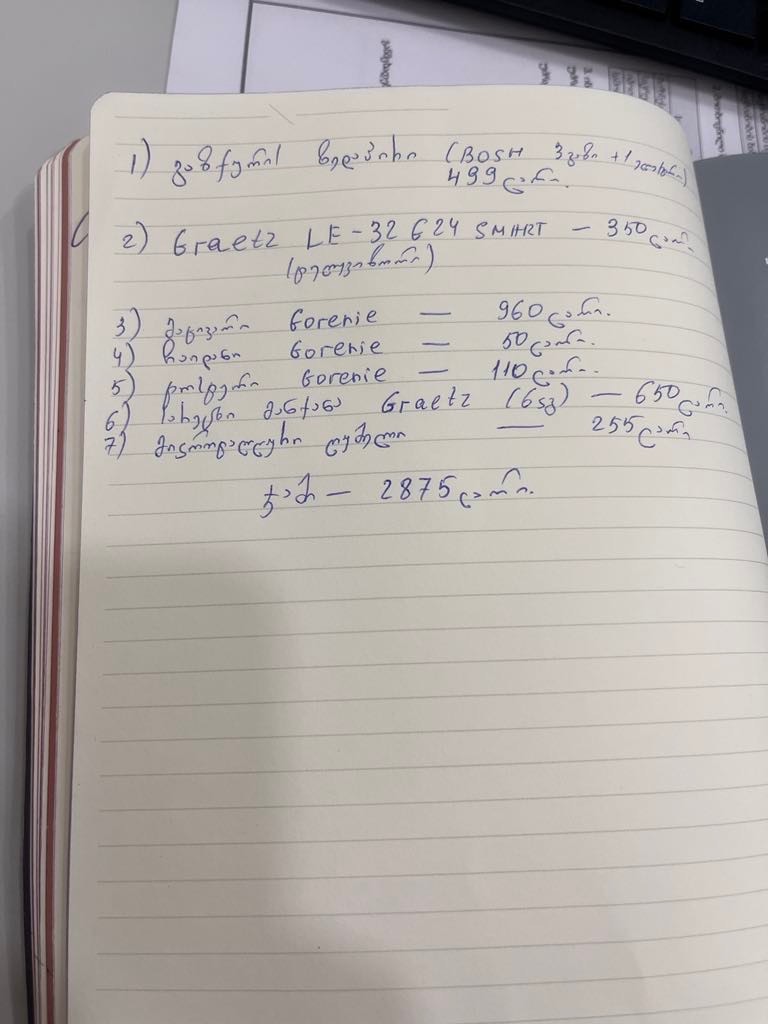 1) გაზქურის ზედაპირი (BOSH 3 გაზი +1 ელექტრო)
499 ლარი.
2) Graetz LE-32 G24 SMART — 350 ლარი
(ტელევიზორი)
3) მაცივარი Gorenie — 960 ლარი.
4) ჩაიდანი Gorenie — 50 ლარი.
5) ტოსტერი Gorenie — 110 ლარი.
6) სარეცხი მანქანა Graetz (6კგ) — 650 ლარი.
7) მიკროტალღური ღუმელი — 255 ლარი
ჯამი — 2875 ლარი.